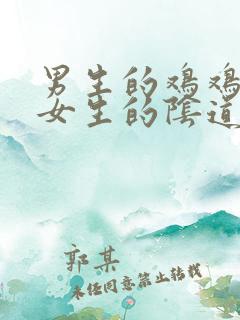 男生的鸡鸡
女生的陰道
郭某
未经同意禁止转载